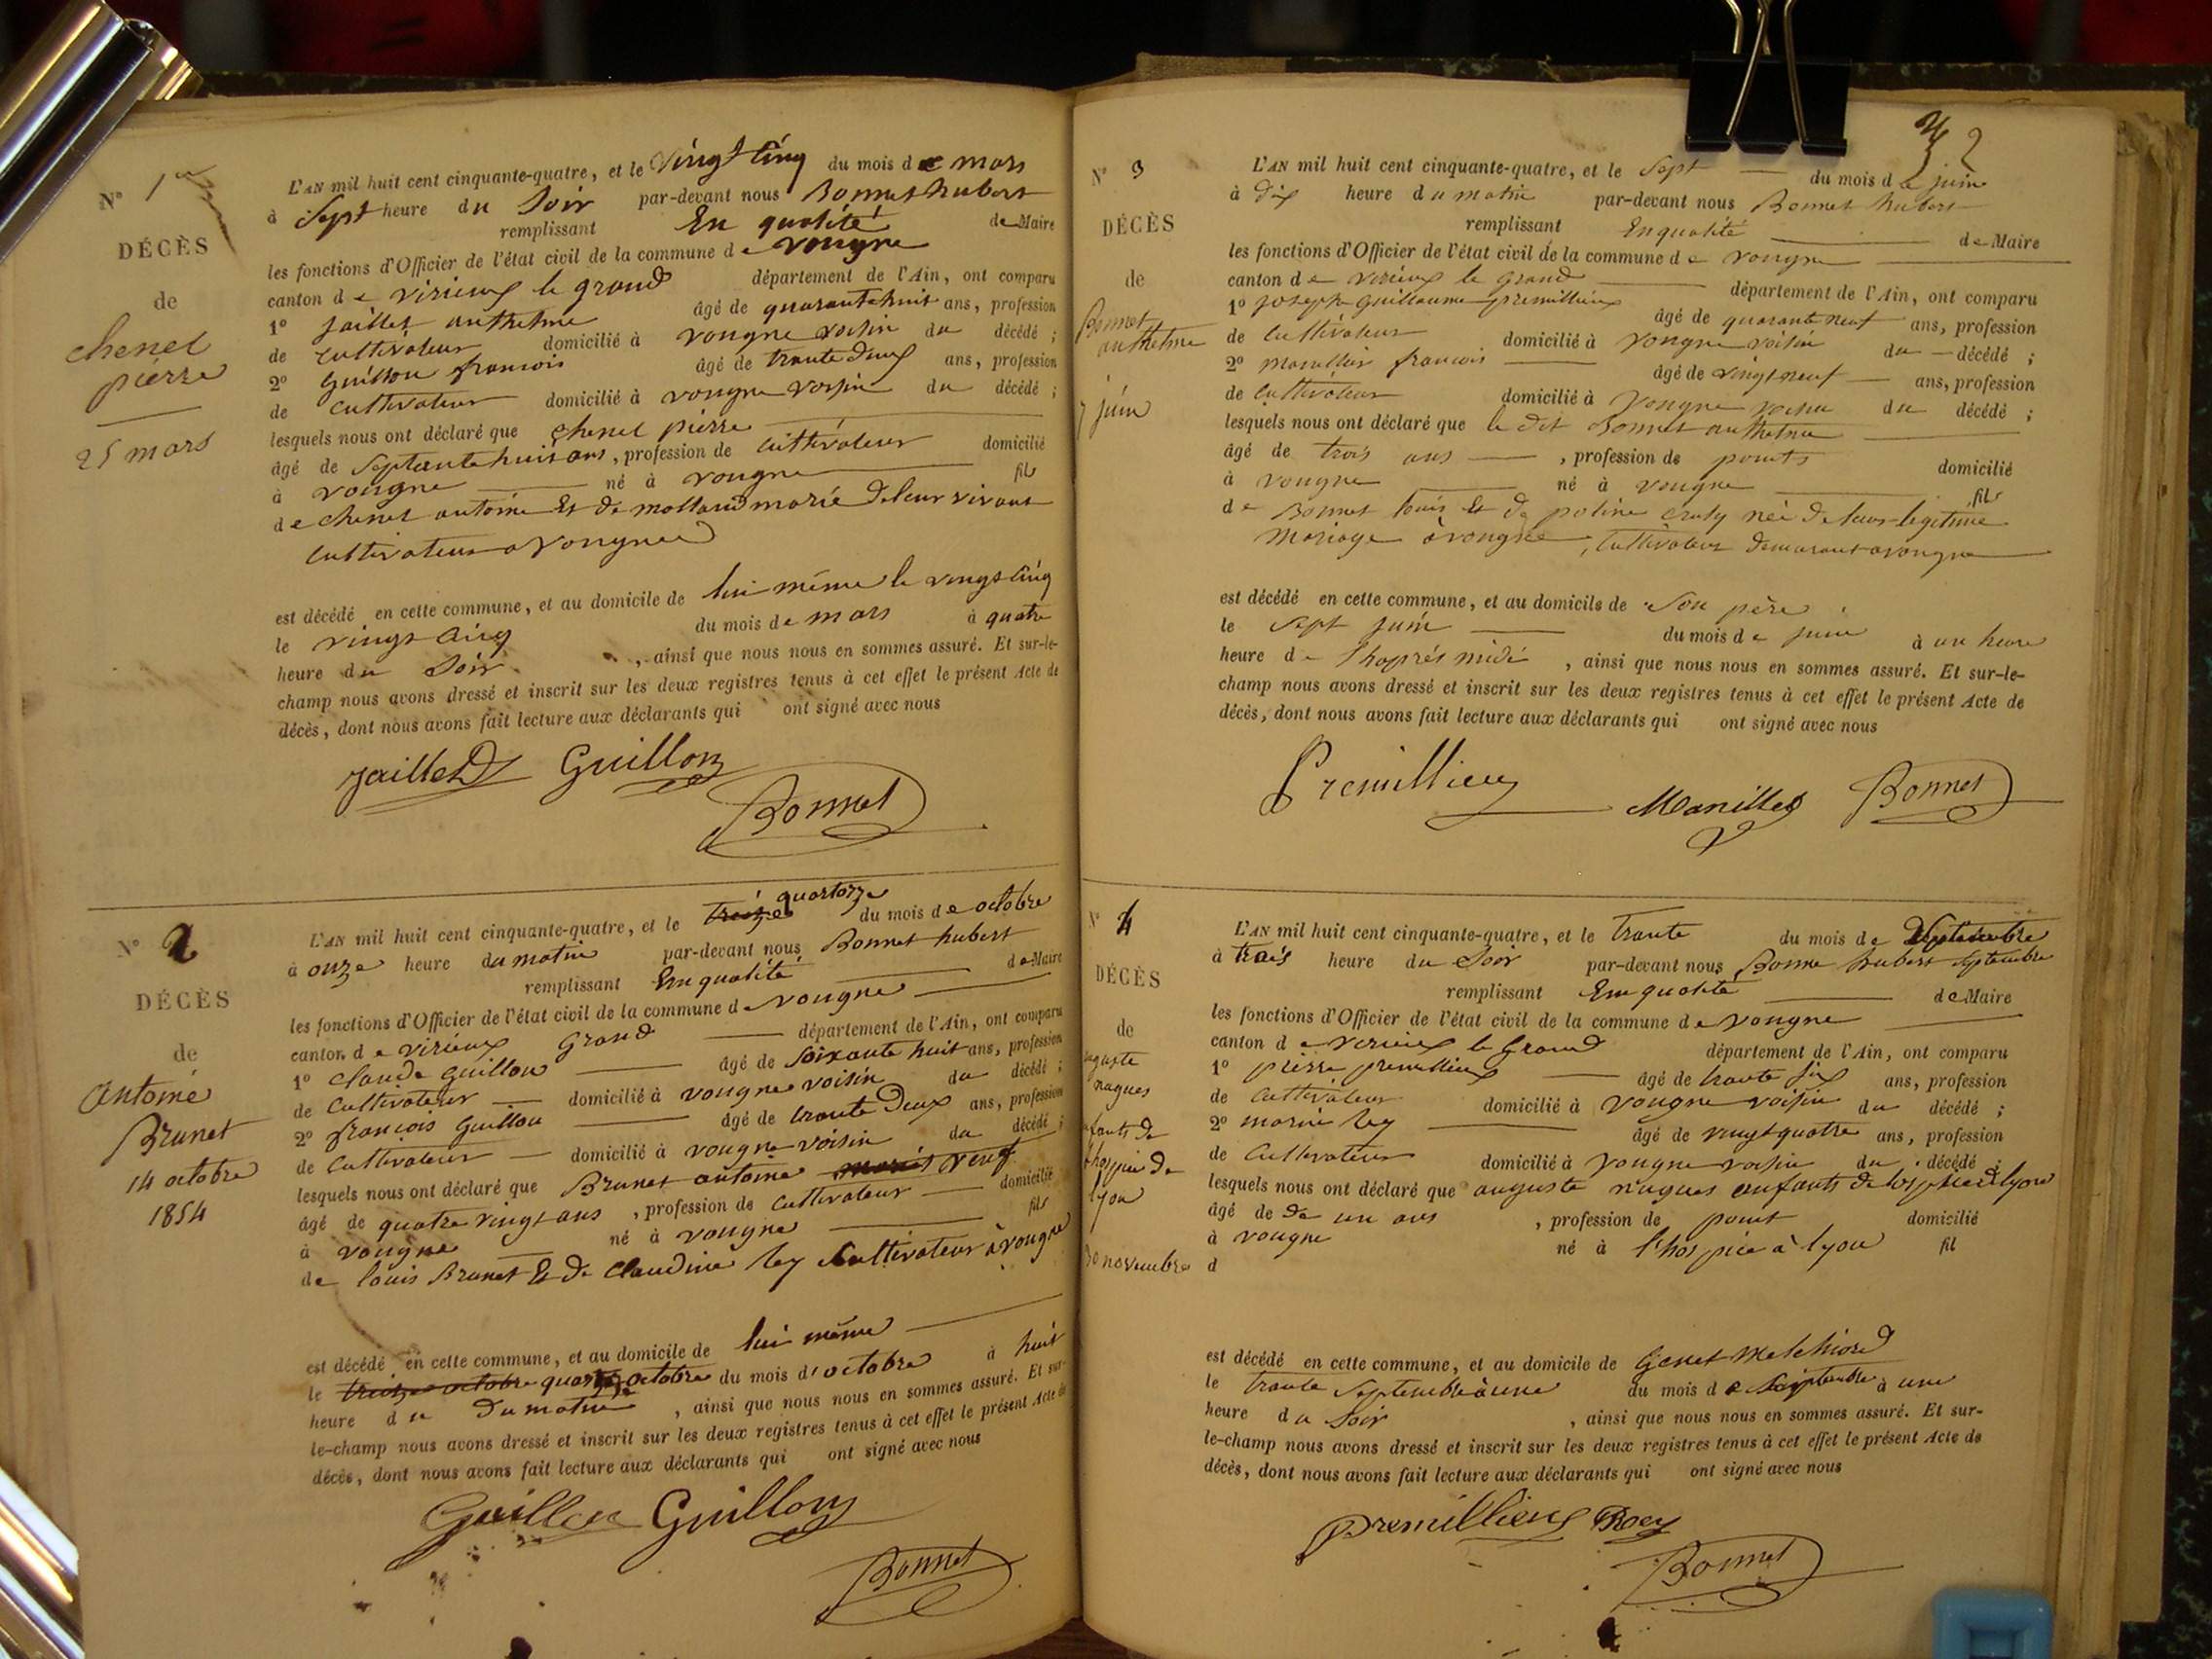 N° 1er
DÉCÈS
de
chenel
pierre
25 mars
L'AN mil huit cent cinquante-quatre, et le vingt cinq du mois de mars
à sept heure du soir par-devant nous Bonnet hubert
remplissant En qualité de Maire
les fonctions d'Officier de l'état civil de la commune de vongne
canton de virieux le grand département de l'Ain, ont comparu
1° jaillet anthelme âgé de quarante huit ans, profession
de cultivateur domicilié à vongne voisin du décédé ;
2° Guillon francois âgé de trante deux ans, profession
de cultivateur domicilié à vongne voisin du décédé ;
lesquels nous ont déclaré que chenel pierre
âgé de septante huit ans, profession de cultivateur domicilié
à vongne né à vongne fils
de chenel antoine Et de mollard marie de leur vivant
cultivateur a vongne
est décédé en cette commune, et au domicile de lui même le vingt cinq
le vingt cinq du mois de mars à quatre
heure du soir, ainsi que nous nous en sommes assuré. Et sur-le-
champ nous avons dressé et inscrit sur les deux registres tenus à cet effet le présent Acte de
décès, dont nous avons fait lecture aux déclarants qui ont signé avec nous
Jaillet Guillon
Bonnet
N° 2
DÉCÈS
de
Antoine
Brunet
14 octobre
1854
quatorze
L'AN mil huit cent cinquante-quatre, et le treize du mois de octobre
à onze heure du matin par-devant nous Bonnet hubert
remplissant En qualité de Maire
les fonctions d'Officier de l'état civil de la commune de vongne
canton de virieux Grand département de l'Ain, ont comparu
1° claude Guillon âgé de soixante huit ans, profession
de Cultivateur domicilié à vongne voisin du décédé ;
2° francois Guillon âgé de trante deux ans, profession
de Cultivateur domicilié à vongne voisin du décédé ;
lesquels nous ont déclaré que Brunet antoine veuf
âgé de quatre vingt ans, profession de cultivateur domicilié
à vongne né à vongne fils
de louis Brunet Et de claudine Rey Cultivateur à vongne
est décédé en cette commune, et au domicile de lui même
le treize octobre quatorze octobre du mois d'octobre à huit
heure du du matin, ainsi que nous nous en sommes assuré. Et sur-
le-champ nous avons dressé et inscrit sur les deux registres tenus à cet effet le présent Acte de
décès, dont nous avons fait lecture aux déclarants qui ont signé avec nous
Guillon Guillon
Bonnet
2
N° 3
DÉCÈS
de
Bonnet
anthelme
7 juin
L'AN mil huit cent cinquante-quatre, et le sept du mois de juin
à dix heure du matin par-devant nous Bonnet hubert
remplissant En qualité de Maire
les fonctions d'Officier de l'état civil de la commune de vongne
canton de virieux le grand département de l'Ain, ont comparu
1° joseph Guillaume premillieux âgé de quarante neuf ans, profession
de Cultivateur domicilié à vongne voisin du décédé ;
2° francois âgé de vingt neuf ans, profession
de Cultivateur domicilié à vongne voisin du décédé ;
lesquels nous ont déclaré que le dit Bonnet anthelme
âgé de trois ans, profession de points domicilié
à vongne né à vongne fils
de Bonnet louis Et de poline née de leur legitime
Mariage à vongne, Cultivateur demeurant a vongne
est décédé en cette commune, et au domicils de son père
le sept juin du mois de juin à un heure
heure de l'haprés midi, ainsi que nous nous en sommes assuré. Et sur-le-
champ nous avons dressé et inscrit sur les deux registres tenus à cet effet le présent Acte de
décès, dont nous avons fait lecture aux déclarants qui ont signé avec nous
Premillieux Bonnet
N° 4
DÉCÈS
de
nugues
de
lyon
30 novembre
L'AN mil huit cent cinquante-quatre, et le trante du mois de Septembre
à trois heure du Soir par-devant nous Bonne hubert septembre
remplissant En qualité de Maire
les fonctions d'Officier de l'état civil de la commune de vongne
canton de virieux le Grand département de l'Ain, ont comparu
1° pierre premillieux âgé de trante six ans, profession
de Cultivateur domicilié à vongne voisin du décédé ;
2° marin Rey âgé de vingt quatre ans, profession
de Cultivateur domicilié à vongne voisin du décédé ;
lesquels nous ont déclaré que auguste nugues enfants de lyon
âgé de de un ans, profession de point domicilié
à vongne né à l'hospice à lyon fil
d
est décédé en cette commune, et au domicile de Genet Melchiord
le trante Septembre à une du mois de Septembre à une
heure du Soir, ainsi que nous nous en sommes assuré. Et sur-
le-champ nous avons dressé et inscrit sur les deux registres tenus à cet effet le présent Acte de
décès, dont nous avons fait lecture aux déclarants qui ont signé avec nous
premillieux Rey
Bonnet